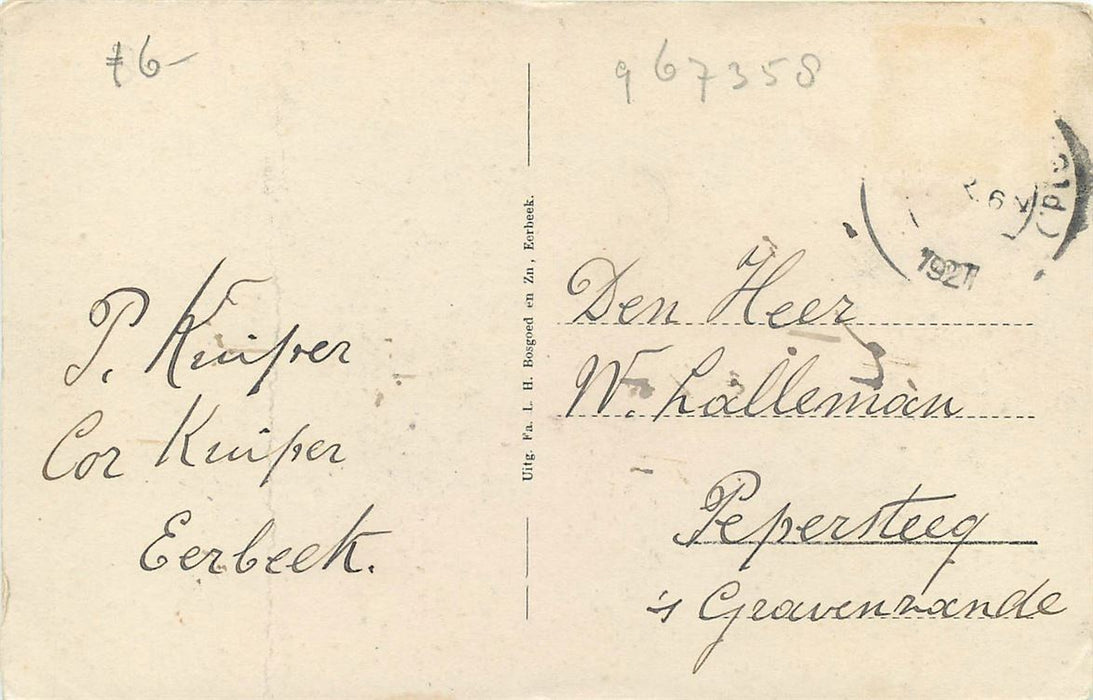 ≠6-
967358
1921
P. Kuiper
Cor Kuiper
Eerbeek.
Uitg. Fa. L. H. Bosgoed en Zn, Eerbeek.
Den Heer
W. Lalleman
Pepersteeg
's Gravenzande